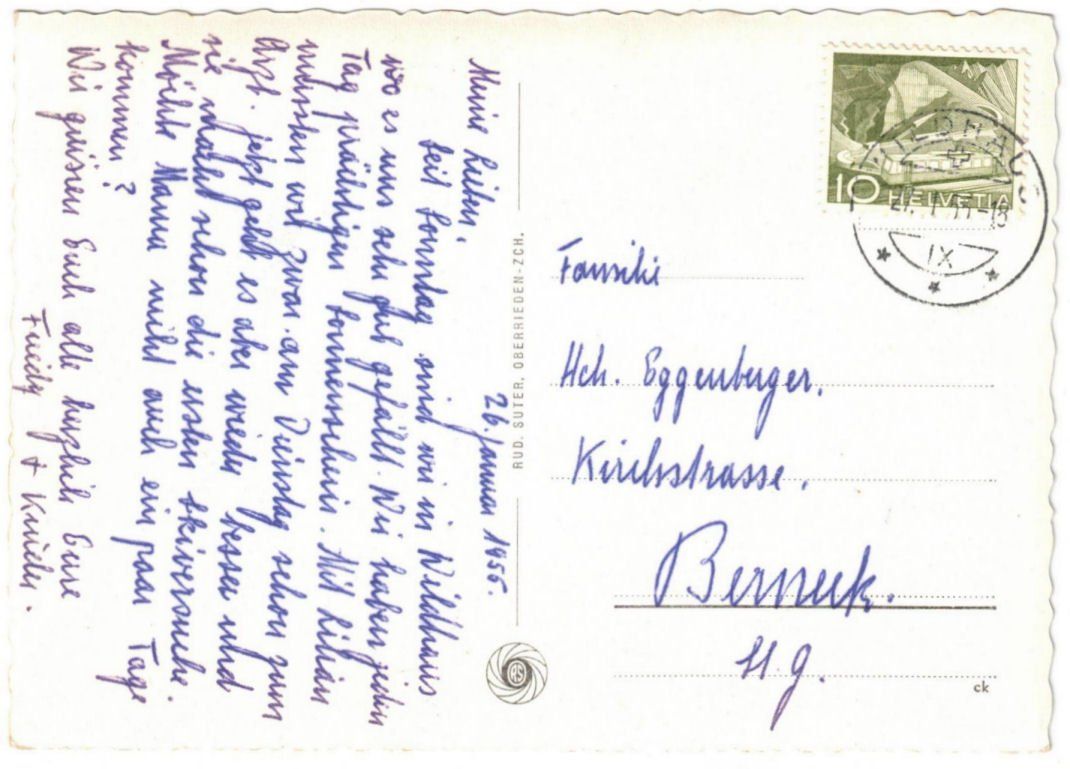 26. Januar 1955.
Meine Lieben,
Seit Sonntag sind wir in Wildhaus
wo es uns sehr gut gefällt. Wir haben jeden
Tag prächtigen Sonnenschein. Mit Lilian
mussten wir zwar am Dienstag schon zum
Arzt. Jetzt geht es aber wieder besser und
sie macht schon die ersten Skiversuche.
Möchte Mama nicht auch ein paar Tage
kommen?
Wir grüssen Euch alle herzlich Eure
Friedy + Kinder.
RUD. SUTER, OBERRIEDEN-ZCH.
RS
10 HELVETIA
WILDHAUS
IX
Familie
Hch. Eggenberger.
Kirchstrasse.
Berneck.
St. G.
ck